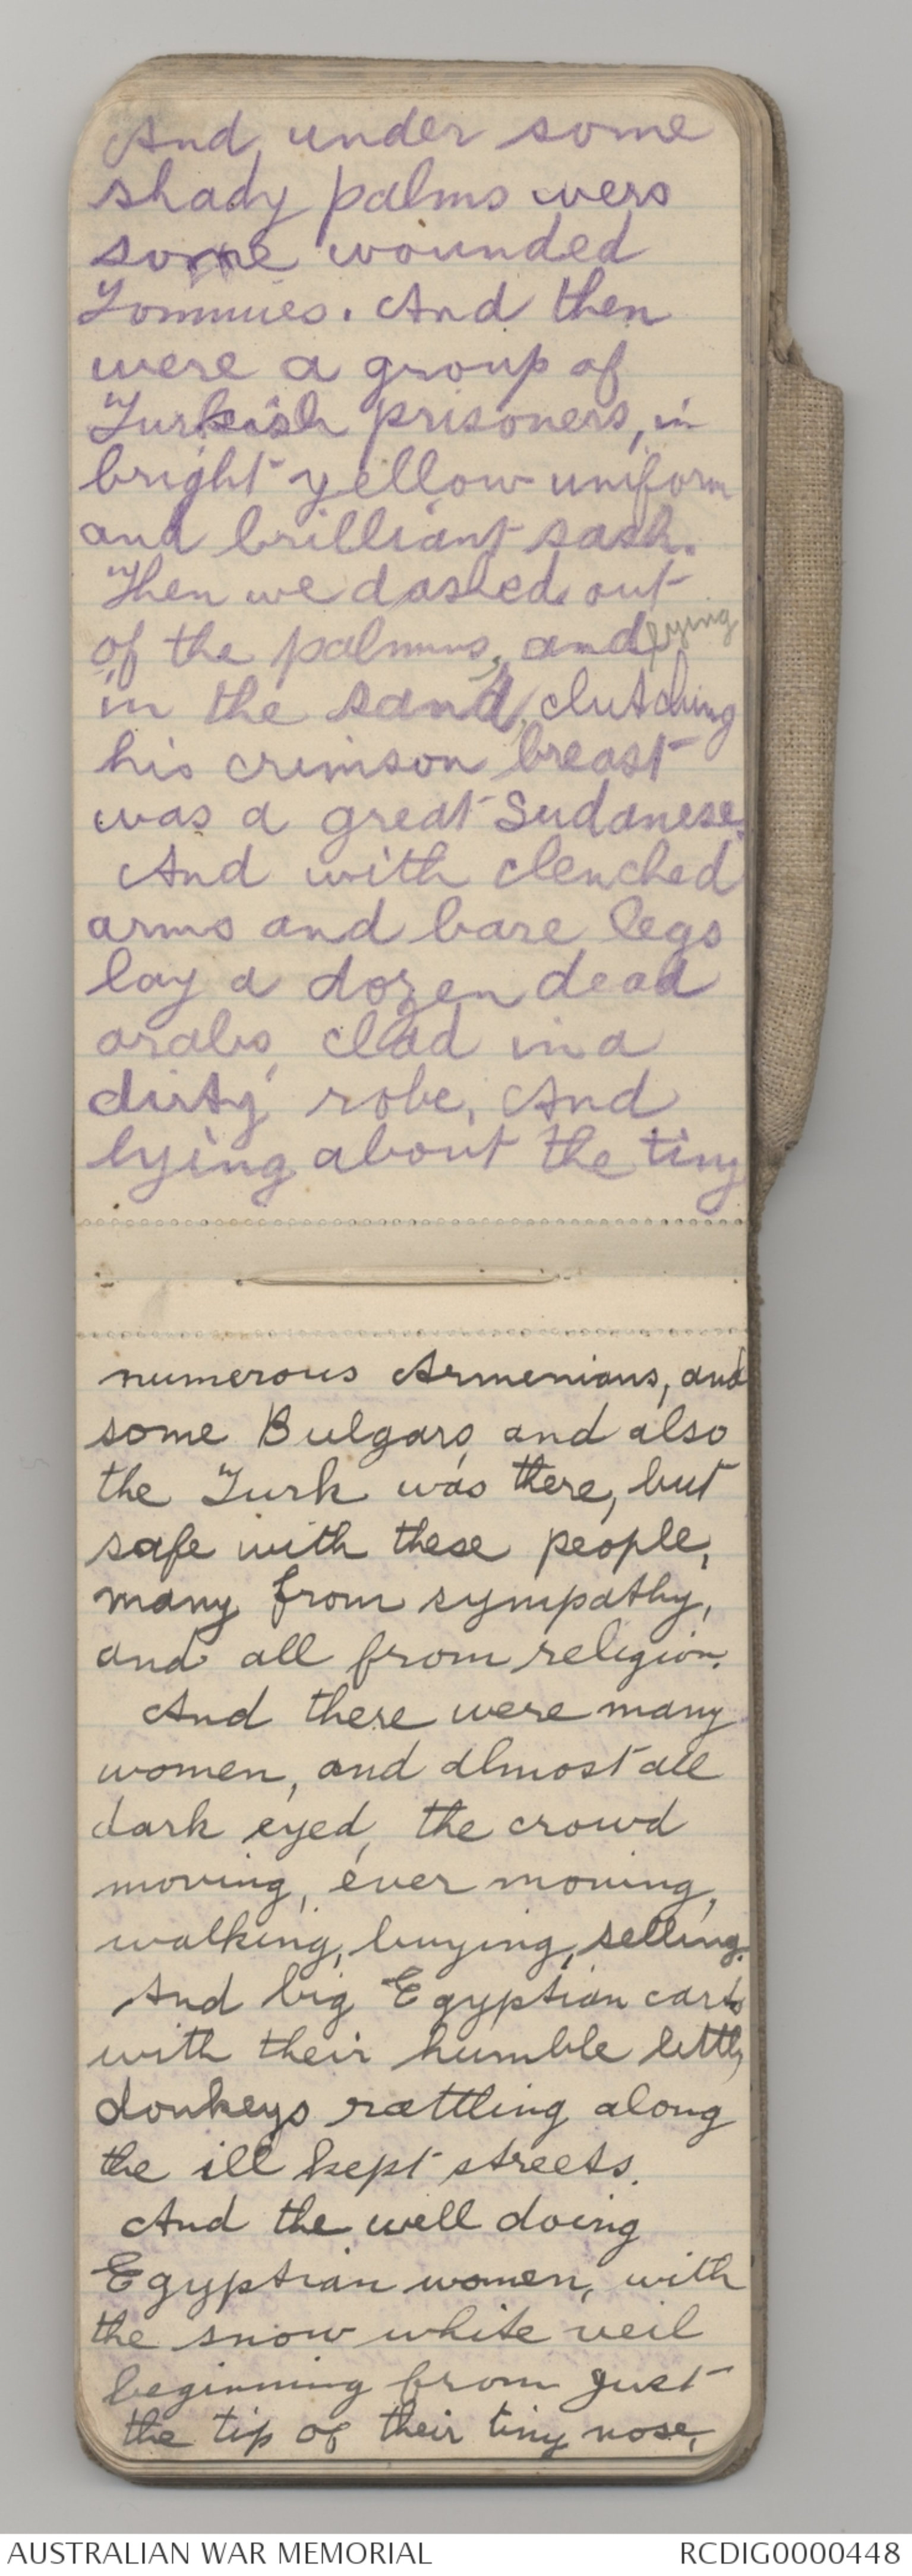 And, under some
shady palms were
some wounded
Tommies. And then
were a group of
Turkish prisoners, in
bright yellow uniform
and brilliant sash.
Then we dashed out
of the palmns, and lying
in the sand, clutching
his crimson breast
was a great Sudanese.
And with clenched
arms and bare legs
lay a dozen dead
arabs, clad in a
dirty robe, And
lying about the tiny
numerous Armenians, and
some Bulgars, and also
the Turk was there, but
safe with these people,
many from sympathy,
and all from religion.
And there were many
women, and almost all
dark eyed, the crowd
moving, ever moving,
walking, buying, selling.
And big Egyptian carts
with their humble little
donkeys rattling along
the ill kept streets.
And the well doing
Egyptian women, with
the snow white veil
beginning from just
the tip of their tiny nose,
AUSTRALIAN WAR MEMORIAL
RCDIG0000448